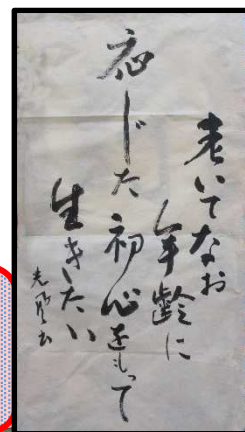 老いてなお
年齢に
応じた初心をもって
生きたい